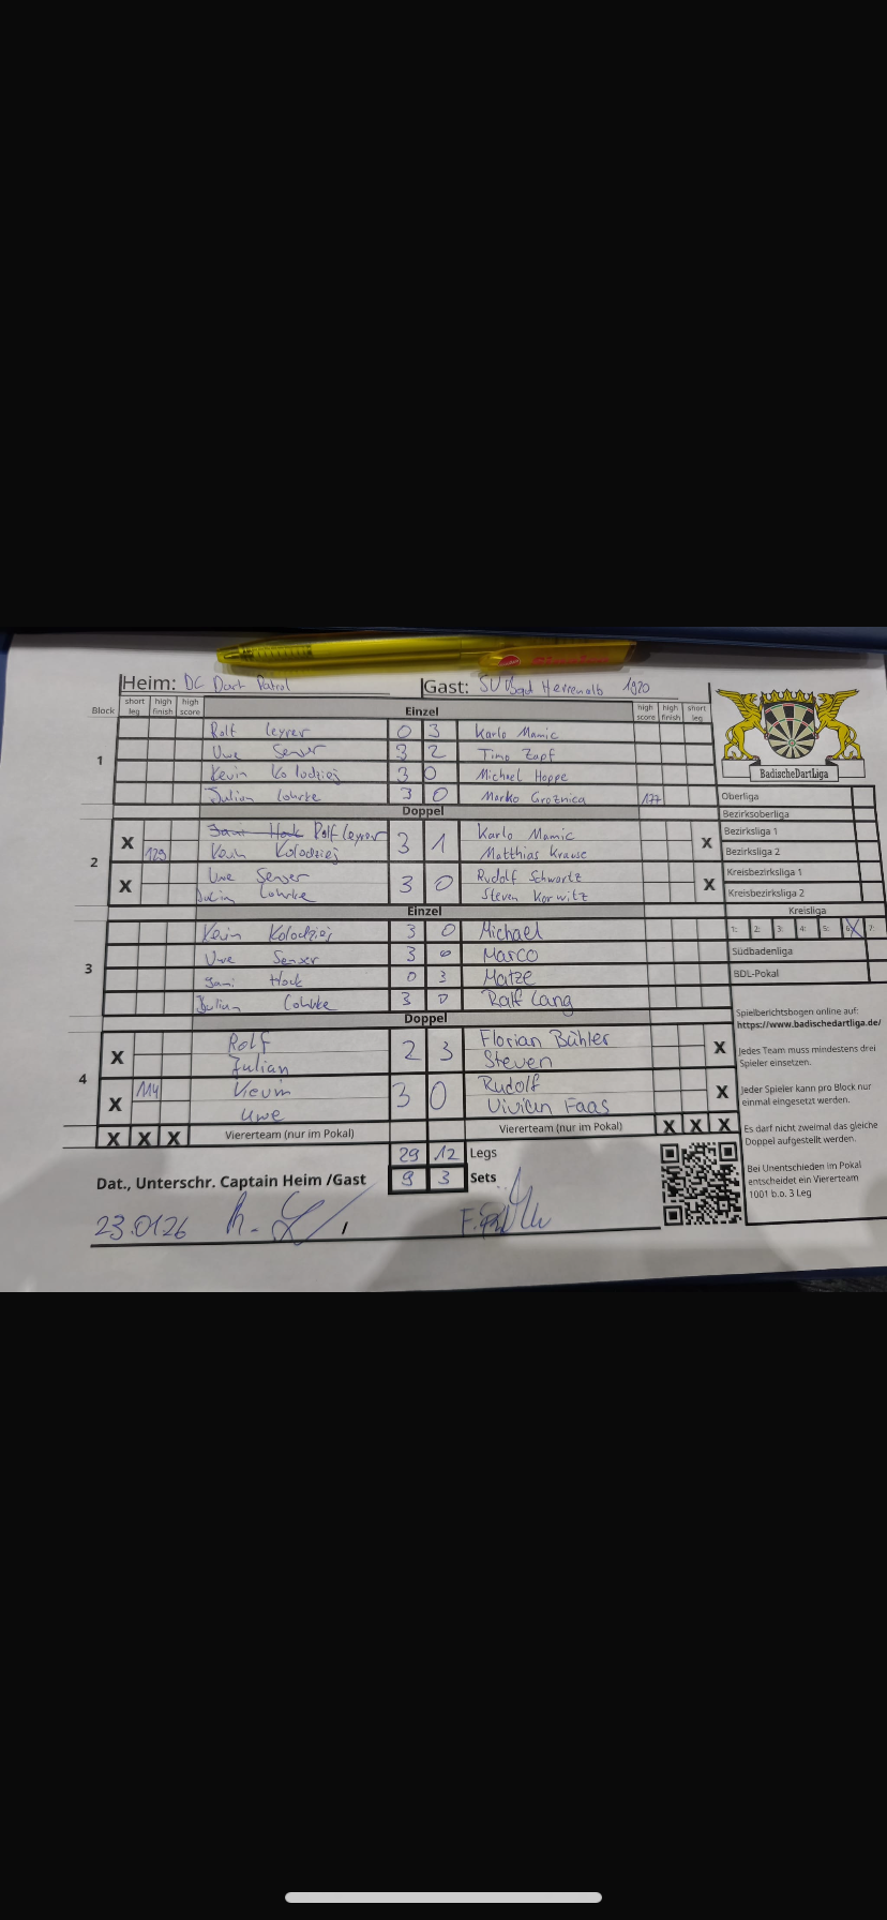 Heim: DC Dart Patrol Gast: SV Bad Herrenalb 1920
Block short leg high finish high score Einzel high score high finish short leg
1
Rolf Leyrer 0 3 Karlo Mamic
Uwe Senser 3 2 Timo Zapf
Kevin Kolodziej 3 0 Michael Hoppe
Julian Lohrke 3 0 Marko Groznica 177
Doppel
2
X Jani Hock Rolf Leyrer 3 1 Karlo Mamic X
129 Kevin Kolodziej Matthias Krause
X Uwe Senser 3 0 Rudolf Schwartz X
Julian Lohrke Steven Korwitz
Einzel
3
Kevin Kolodziej 3 0 Michael
Uwe Senser 3 0 Marco
Jani Hock 0 3 Matze
Julian Lohrke 3 0 Ralf Lang
Doppel
4
X Rolf 2 3 Florian Bühler X
Julian Steven
X 114 3 0 Rudolf X
Uwe Vivian Faas
X X X Viererteam (nur im Pokal) Viererteam (nur im Pokal) X X X
29 12 Legs
9 3 Sets
Dat., Unterschr. Captain Heim /Gast
23.0126
BadischeDartLiga
Oberliga
Bezirksoberliga
Bezirksliga 1
Bezirksliga 2
Kreisbezirksliga 1
Kreisbezirksliga 2
Kreisliga
1: 2: 3: 4: 5: 6: X 7:
Südbadenliga
BDL-Pokal
Spielberichtsbogen online auf:
https://www.badischedartliga.de/
Jedes Team muss mindestens drei
Spieler einsetzen.
Jeder Spieler kann pro Block nur
einmal eingesetzt werden.
Es darf nicht zweimal das gleiche
Doppel aufgestellt werden.
Bei Unentschieden im Pokal
entscheidet ein Viererteam
1001 b.o. 3 Leg